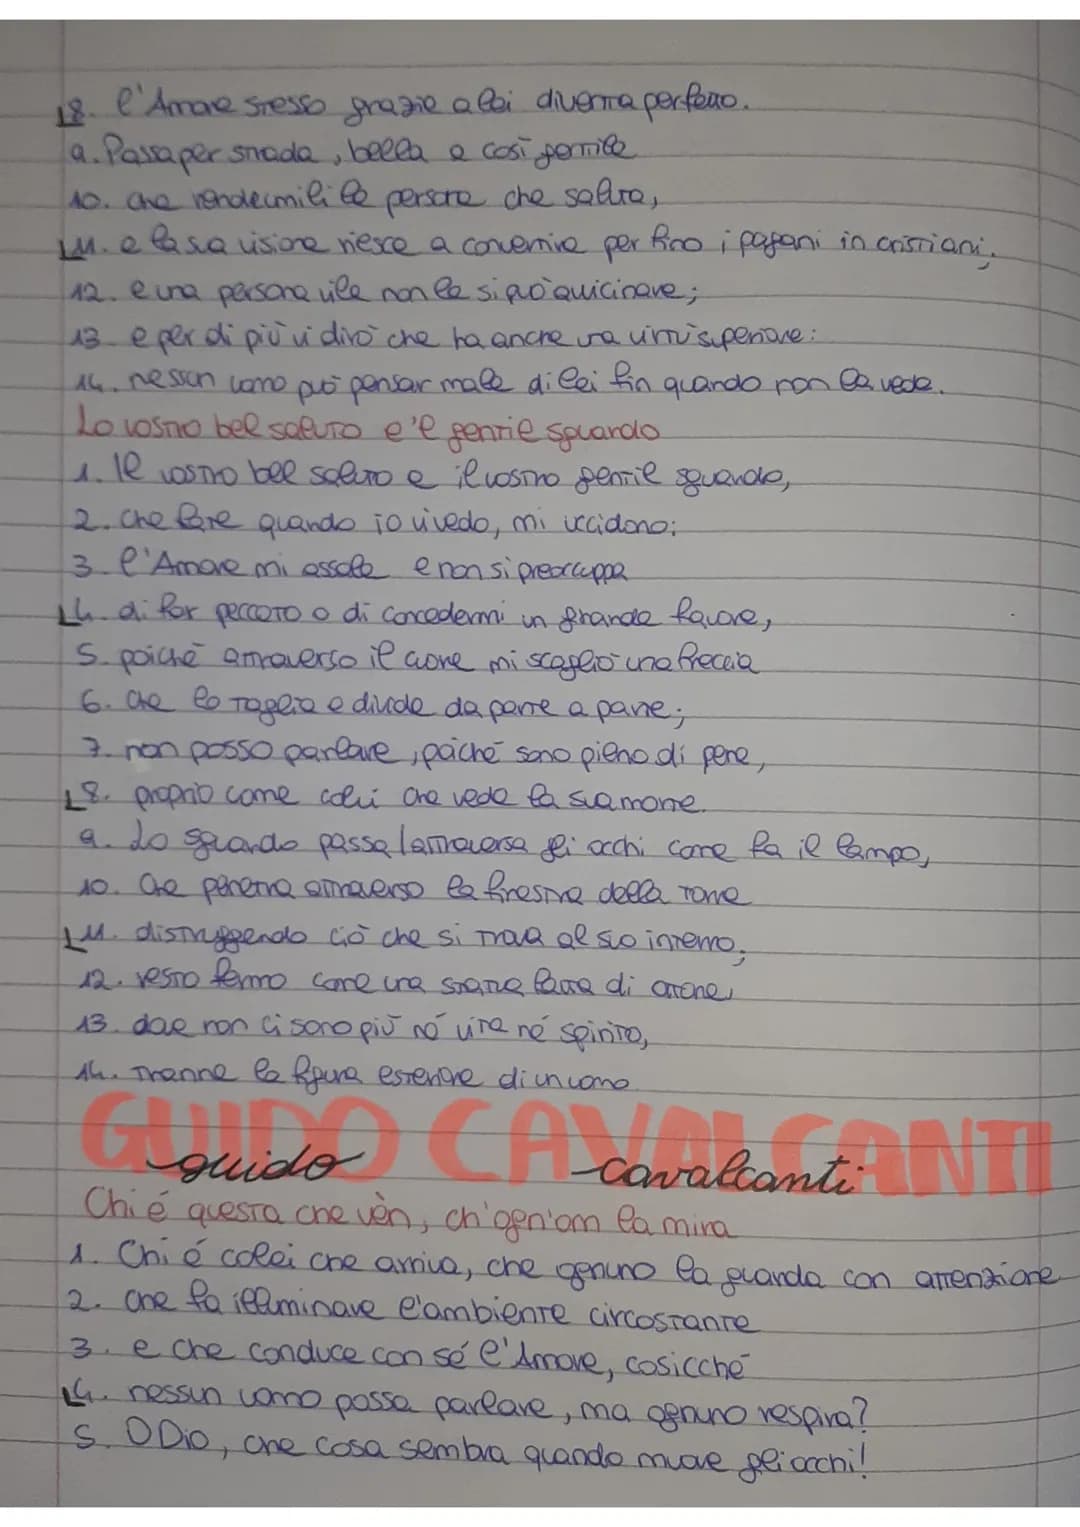 8. l'Amore stesso grazie a lei diventa perfetto.
9. Passa per strada, bella e così gentile
10. che rende umili le persone che saluta,
11. e la sua visione riesce a convertire per fino i pagani in cristiani;
12. e una persona vile non le si può avvicinare;
13. e per di più vi dirò che ha anche una virtù superiore:
14. nessun uomo può pensar male di lei fin quando non la vede.
Lo vostro bel saluto e 'l gentil sguardo
1. Il vostro bel saluto e il vostro gentil sguardo,
2. che fate quando io vi vedo, mi uccidono:
3. l'Amore mi assale e non si preoccupa
4. di far peccato o di concedermi un grande favore,
5. poiché attraverso il cuore mi scagliò una freccia
6. che lo taglia e divide da parte a parte;
7. non posso parlare, poiché sono pieno di pene,
8. proprio come colui che vede la sua morte.
9. Lo sguardo passa lattraversa gli occhi come fa il lampo,
10. che penetra attraverso la finestra della torre
11. distruggendo ciò che si trova al suo interno;
12. resto fermo come una statua fatta di ottone,
13. dove non ci sono più né vita né spirito,
14. tranne la figura esteriore di un uomo.
GUIDO CAVALCANTI
guido cavalcanti
Chi é questa che vèn, ch'ogn'om la mira
1. Chi é colei che arriva, che ognuno la guarda con attenzione
2. che fa illuminare l'ambiente circostante
3. e che conduce con sé l'Amore, cosicché
4. nessun uomo possa parlare, ma ognuno respira?
5. O Dio, che cosa sembra quando muove gli occhi!